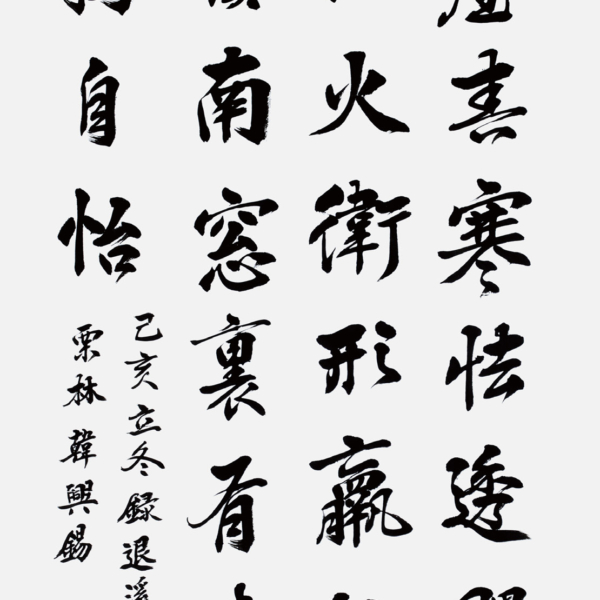 春寒怯透
火衛形羸
南窓裏有
自怡
己亥立冬錄退溪
栗林韓興錫